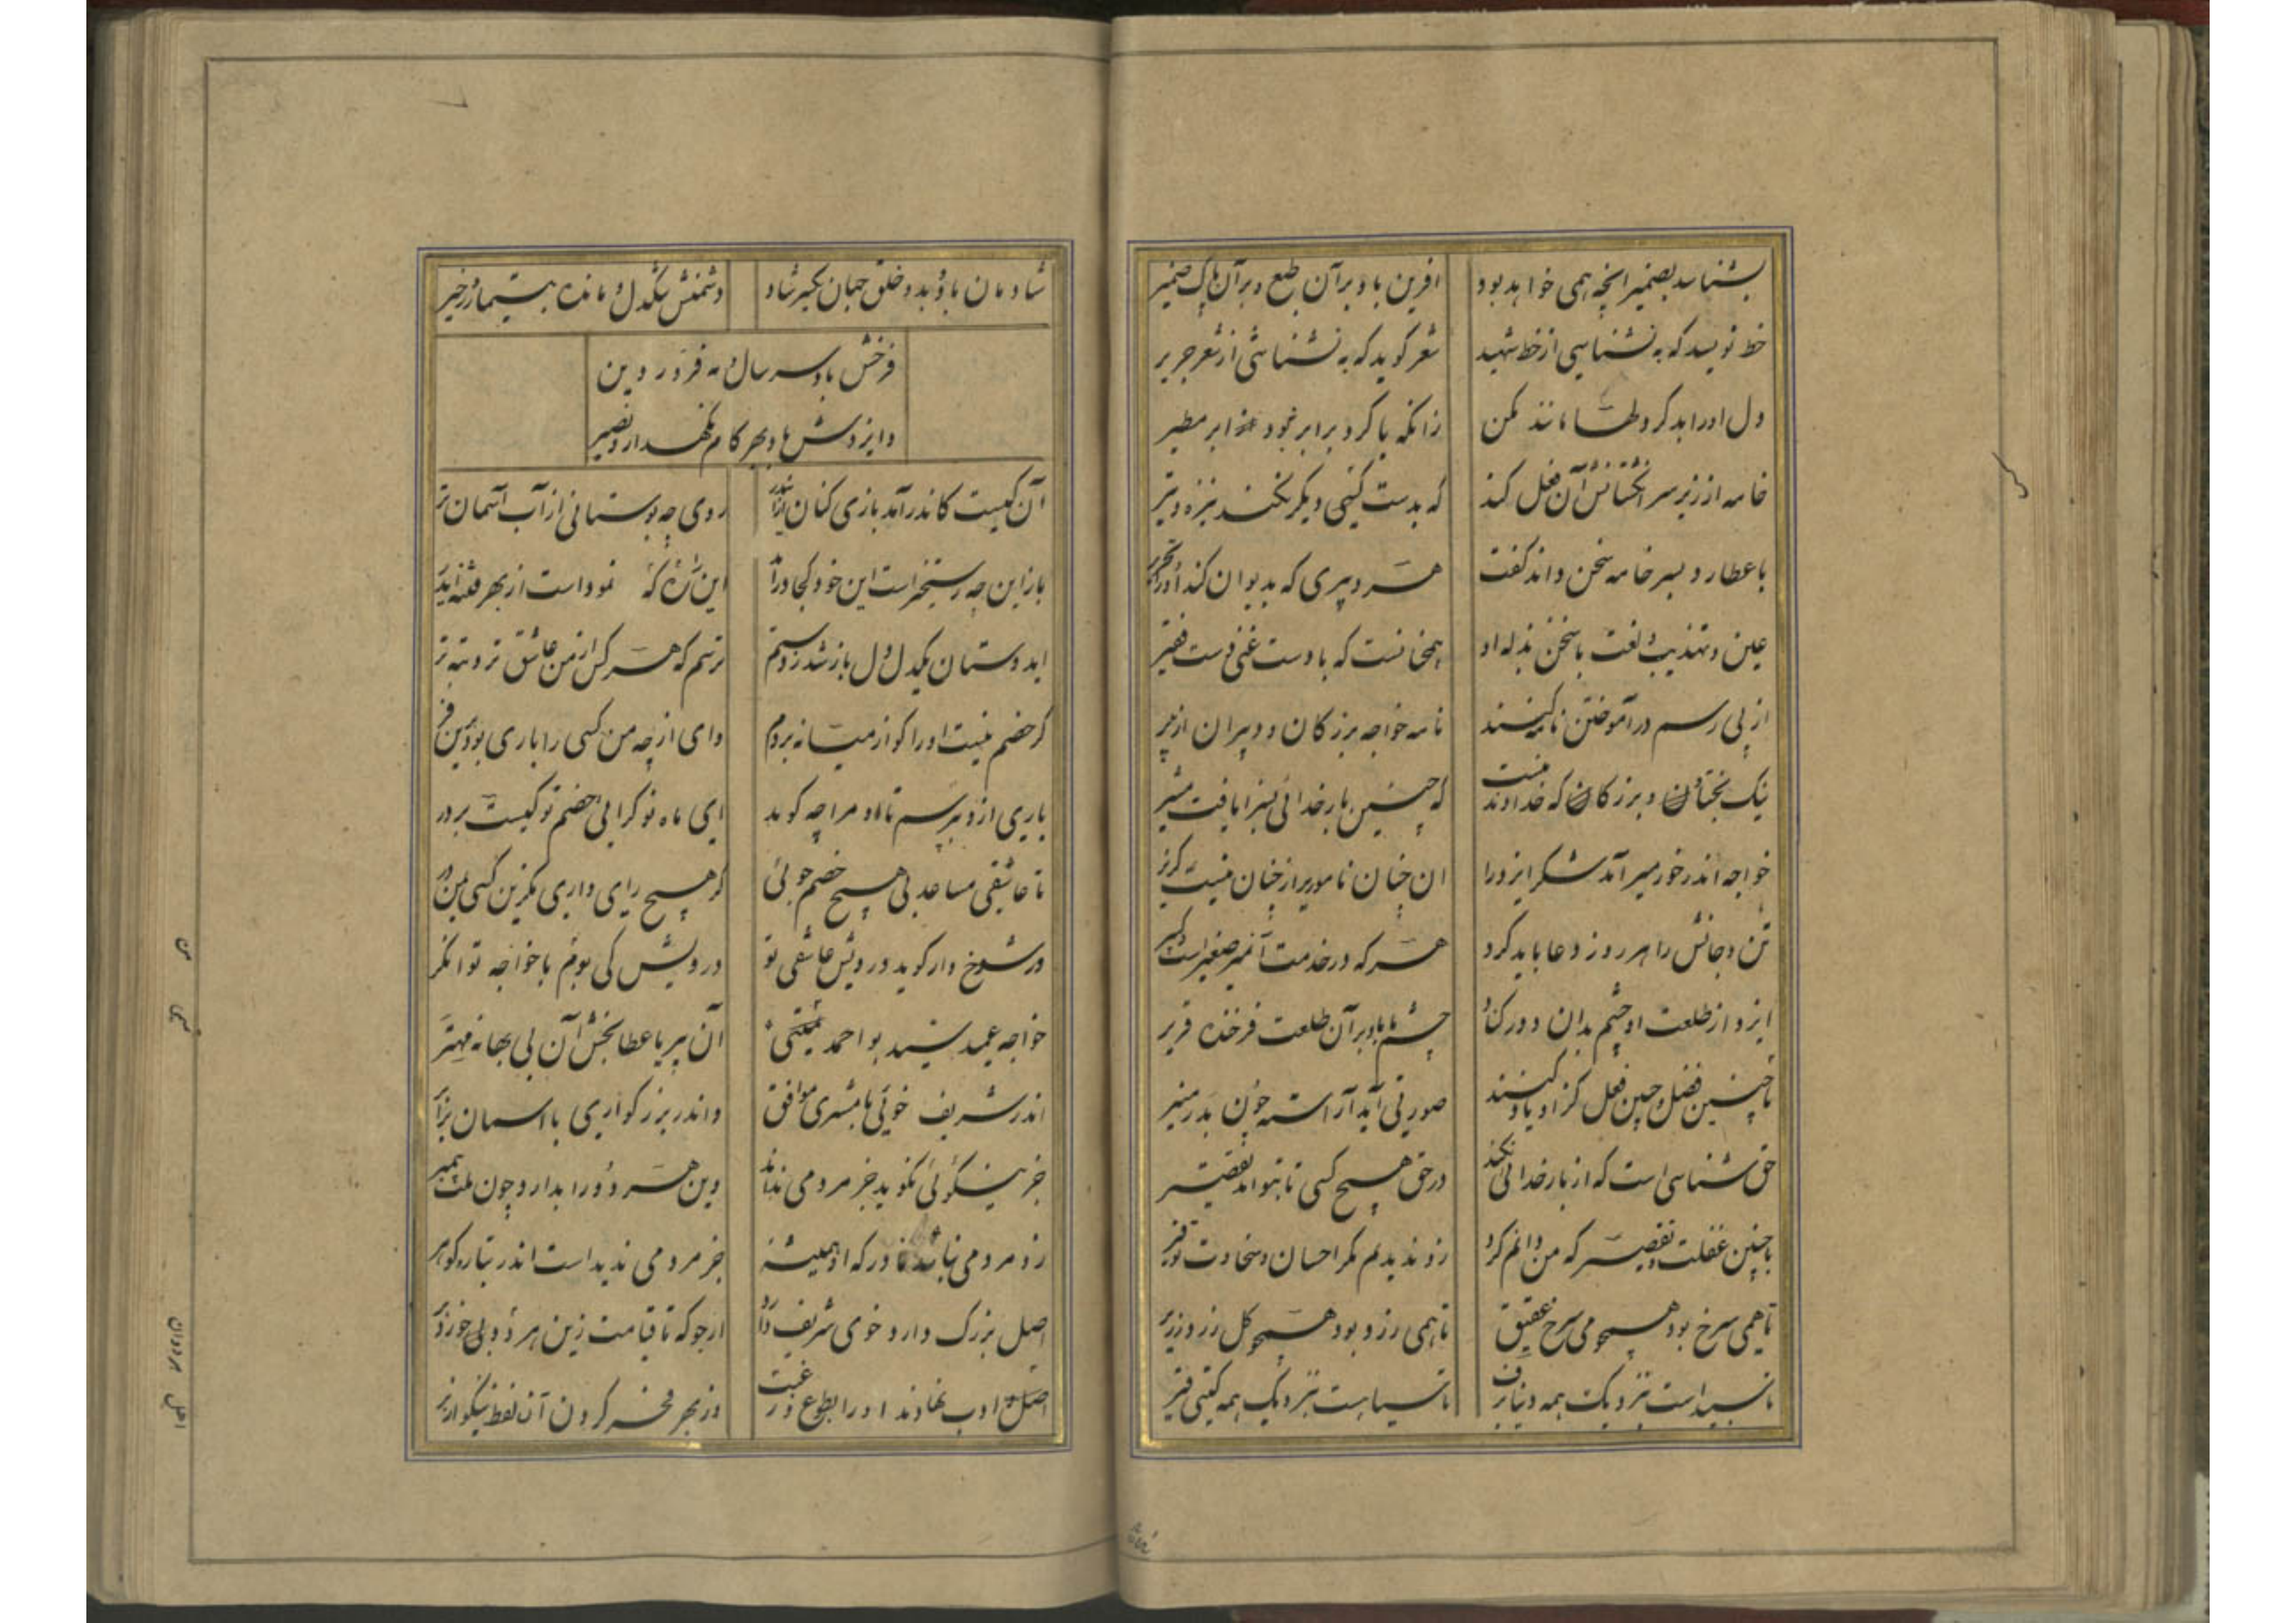 بشناسد بضمیر انچه همی خواهد بود افرین باد بر آن طبع و بر آن پاک ضمیر
خط نویسد که به نشناسی از خط شهید شعر گوید که به نشناشی از شعر جریر
دل او را بد کرد ماند نکن زانکه با کرد برابر نبود ابر مطیر
خامه از زیر سر انگشتانش آن فعل کند که بدست کنی دیگر نکند نیزه و تیر
با عطارد بسر خامه سخن داند گفت هر دبیری که بدیوان کند او را تحریر
عین و تهذیب لغت با سخن بذله او همچنانست که با دست غنی دست فقیر
از پی رسم در آموختن نامه کنند نامه خواجه بزرگان و دبیران از بر
نیک بختان و بزرگان که خداوند که چنین بار خدائی بسزا یافت مشیر
خواجه اندر خور میر آمد شکر ایزد را ان چنان نامور از چنان نیست گزیر
تن و جانش را هر روز دعا باید کرد هر که در خدمت آن میر صغیر است و کبیر
ایزد از طلعت او چشم بدان دور کناد چشم ما باد بر آن طلعت فرخنده قریر
با چنین فضل و چنین فعل کزو یاد کنند صورتی آید آراسته چون بدر منیر
حق شناسی است که از بار خدائی نکند در حق هیچ کسی تا بتواند تقصیر
با چنین غفلت و تقصیر که من دانم کرد زو ندیدم مگر احسان و سخاوت توفیر
تا همی سرخ بود همچو می سرخ عقیق تا همی زرد بود همچو گل زرد زریر
تا سپید است بنزدیک همه دنیا برف تا سیاهست بنزدیک همه گیتی قیر
شادمان باد و بدو خلق جهان یکسر شاد دشمنش تنگدل و مانده بتیمار و زحیر
فرخش باد سر سال و مه فروردین
و ایزدش باد بهر کام نگهدار و نصیر
آن کیست کاندر آمد بازی کنان ازین در روی چو بوستانی از آب آسمان تر
باز این چه رستخیز است این خود کجا در آمد این را که نمود است از بهر فتنه ایدر
ای دوستان یکدل دل باز شد ز دستم ترسم که هر کس از من عاشق تر و تبه تر
گر خصم نیست او را کو از میانه بردم وای از چه من کسی را یاری بود ازین فر
باری ازو بپرسم تا او مرا چه گوید ای ماه نو کرایی خصم تو کیست بر در
تا عاشقی مساعد بی هیچ خصم جوئی گر هیچ رای داری مگزین کسی بمن بر
ور شوخ وار گوید درویش عاشقی تو درویش کی بوم با خواجه توانگر
خواجه عمید سید بو احمد تمیمی آن پر با عطا بخش آن بی بهانه مهتر
اندر شریف خوئی با مشتری موافق و اندر بزرگواری با اسمان برابر
جز نیکوئی نگوید جز مردمی نداند وین هر دو را بدارد چون ملت پیمبر
زو مردمی نباشد نادر که او همیشه جز مردمی ندید است اندر تبار و گوهر
اصل بزرگ دارد خوی شریف دارد ارجو که تا قیامت زین هر دو بر خورد
اصل ادب نهادند او را بطوع و رغبت وز بهر فخر کردن آن لفظ نیکو از بر